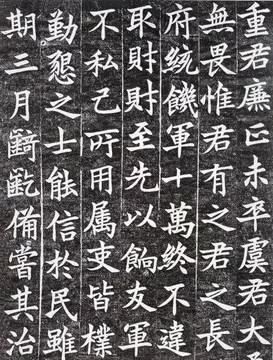 重君廉正未卒虞君大
無畏惟君有之君之長
府統饑軍十萬終不違
取財財至先以餉友軍
不私己所用属吏皆樸
勤懇之士能信於民雖
期三月齮齕備嘗其治